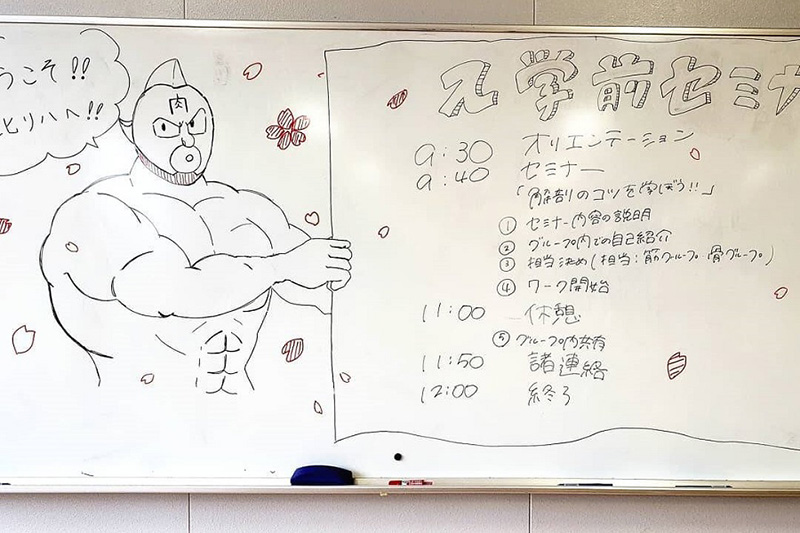 うこそ!!
北リハへ!!
肉
入学前セミナ
9:30 オリエンテーション
9:40 セミナー
「解剖のコツを学ぼう!!」
① セミナー内容の説明
② グループ内での自己紹介
③ 担当決め(担当:筋グループ 骨グループ)
④ ワーク開始
11:00 休憩
⑤ グループ内共有
11:50 諸連絡
12:00 終了